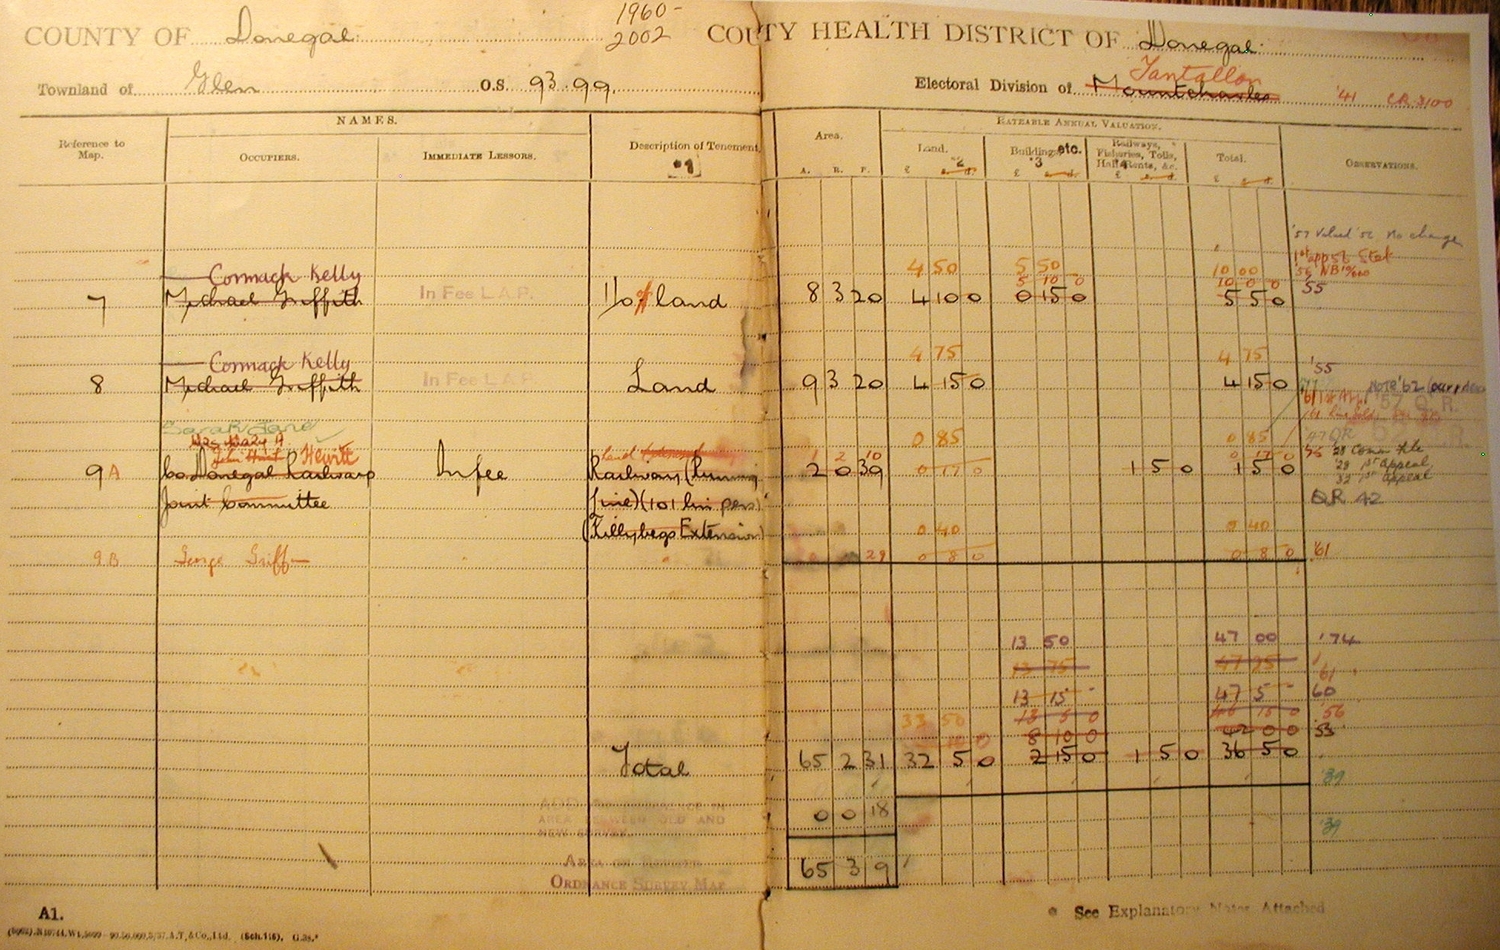 1960-
2002
COUNTY OF Donegal
COUTY HEALTH DISTRICT OF Donegal
Townland of Glen O.S. 93.99.
Tantallon
Electoral Division of Mountcharles '41 CR 3100
NAMES.
RATEABLE ANNUAL VALUATION.
Reference to Map. OCCUPIERS. IMMEDIATE LESSORS. Description of Tenement *1 Area. Land. *2 Buildings, etc. *3 Railways, Fisheries, Tolls, Half Rents, &c. *4 Total. OBSERVATIONS.
A. R. P. £ s. d. £ s. d. £ s. d. £ s. d.
'57 Valued '56 No change
Cormack Kelly 4 50 5 50 10 00
5 10 0 10 0 0
7 Michael Griffith In Fee L.A.P. of land 8 3 20 4 10 0 0 15 0 5 5 0 55
Cormack Kelly 4 75 4 75 '55
8 Michael Griffith In Fee L.A.P. Land 9 3 20 4 15 0 4 15 0
Note '62
Sarah Jane
Hewitt 0 85 0 85
land 1 2 10 0 17 0 0 17 0
9A Co. Donegal Railways In fee Railway (Running 2 0 39 1 5 0 1 5 0
Joint Committee Line) (101 lin pers)
QR 42
(Killybegs Extension) 0 40 0 40
9B George Griff 29 0 8 0 0 8 0 '61
13 50 47 00 '74
13 75 47 25
'61
13 15 - 47 5 - 60
33 50 13 5 0 46 15 0 '56
8 10 0 42 0 0 53
Total 65 2 31 32 5 0 2 15 0 1 5 0 36 5 0
'39
ADD FOR DIFFERENCE IN
AREA BETWEEN OLD AND
NEW SURVEY. 0 0 18 '39
AREA ON REVISED
ORDNANCE SURVEY MAP 65 3 9
A1.
* See Explanatory Notes Attached